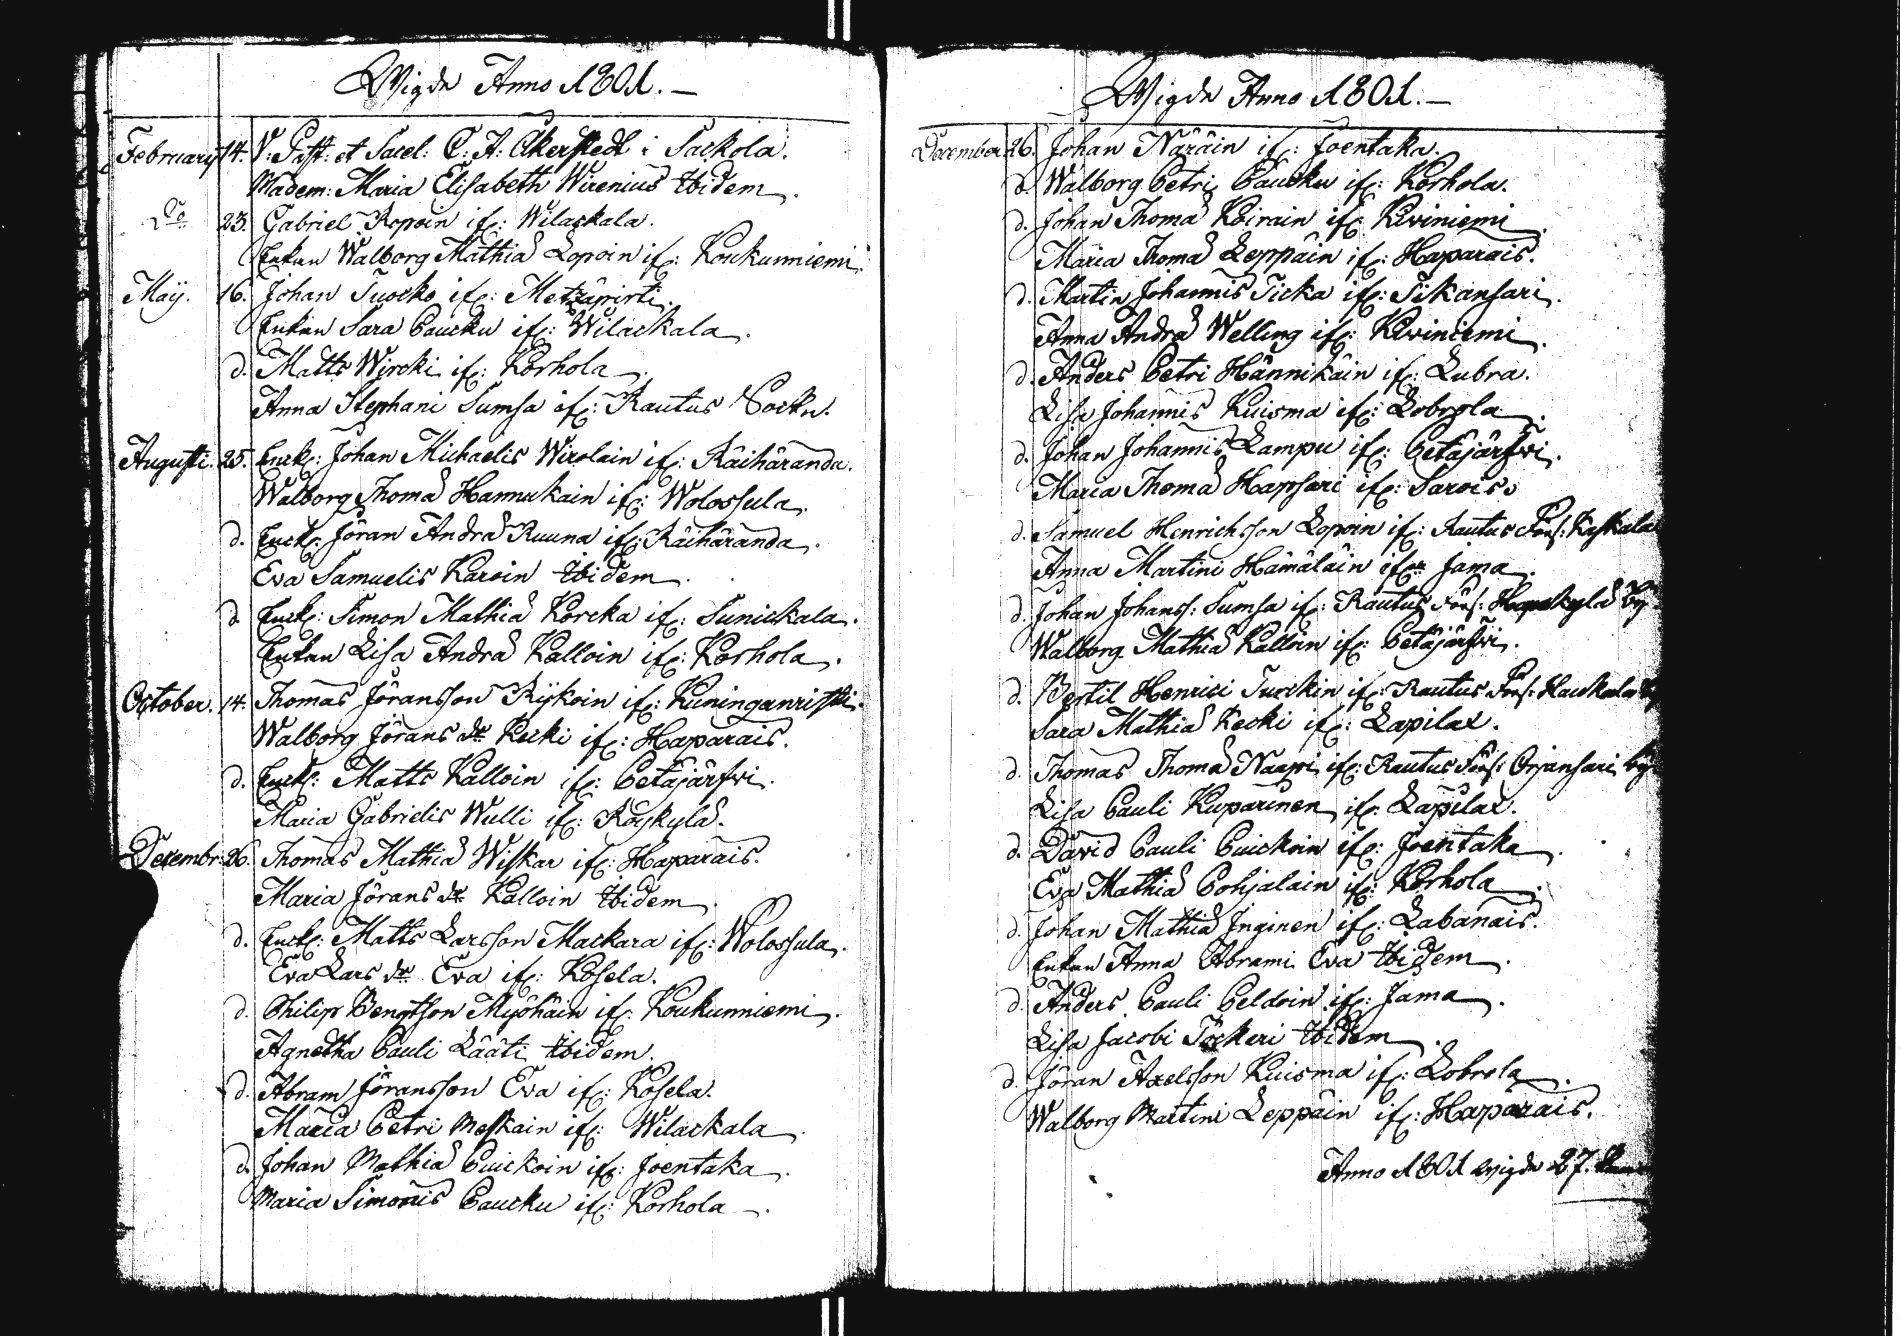 Wigde Anno 1801.
February 14. V: Past: et Sacel: C: A: Åkerstedt i Sackola.
Madem: Maria Elisabeth Wirenius Ibidem.
Do 23. Gabriel Ropoin if: Wilackala.
Enkan Walborg Mathiæ Lopoin if: Koukunniemi.
Maÿ. 16. Johan Tuocko if: Metzäpirti.
Enkan Sara Paucku if: Wilackala.
d. Matts Wirocki if: Korhola.
Anna Stephani Sumsa if: Rautus Sockn.
Augusti. 25. Enck: Johan Michaelis Wirolain if: Räihäranda.
Walborg Thomæ Hannukain if: Wolossula.
d. Enck: Jöran Andræ Ruuna if: Räihäranda.
Eva Samuelis Karoin Ibidem.
d Enck: Simon Mathiæ Korcka if: Sunickala.
Enkan Lisa Andræ Kalloin if: Korhola.
October. 14. Thomas Jöransson Kÿkoin if: Kuninganristi.
Walborg Jörans dr Kecki if: Haparais.
d. Enck: Matts Kalloin if: Petäjärfwi.
Maria Gabrielis Wulli if: Röÿkÿlä.
Decembr: 26. Thomas Mathiæ Wiskar if: Haparais.
Maria Jörans dr Kalloin Ibidem.
d. Enck: Matts Larsson Mackara if: Wolossula.
Eva Lars dr Eva if: Kosela.
d. Philip Bengtson Myöhäin if: Koukunniemi.
Agnetha Pauli Lääti Ibidem.
d. Abram Jöransson Eva if: Kosela.
Maria Petri Meskain if: Wilackala.
d. Johan Mathiæ Puickoin if: Joentaka.
Maria Simonis Paucku if: Korhola.
Wigde Anno 1801.
December 26. Johan Näräin if: Joentaka.
d. Walborg Petri Paucku if: Korhola.
d. Johan Thomæ Koirain if: Kiviniemi.
Maria Thomæ Leppäin if: Haparais.
d. Martin Johannis Ticka if: Sikansari.
Anna Andræ Welling if: Kiviniemi.
d. Anders Petri Hännikäin if: Lubra.
Lisa Johannis Kuisma if: Lobrola.
d. Johan Johannis Lampu if: Petäjärfwi.
Maria Thomæ Hapsari if: Sarois.
d. Samuel Henrichsson Lopoin if: Rautus Förs: Kaskala
Anna Martini Hämäläin if: Jama.
d. Johan Johanss: Sumsa if: Rautus Förs: by
Walborg Mathiæ Kalloin if: Petäjärfwi.
d. Bertil Henrici Tuockin if: Rautus Förs: Hauckala by
Sara Mathiæ Kecki if: Lapilax.
d. Thomas Thomæ Naapi if: Rautus Förs: Orjansari by
Lisa Pauli Kuparinen if: Lapilax.
d. David Pauli Puickoin if: Joentaka.
Eva Mathiæ Pohjalain if: Korhola.
d. Johan Mathiæ Inginen if: Labanais.
Enkan Anna Abrami Eva Ibidem.
d. Anders Pauli Peldoin if: Jama.
Lisa Jacobi Töckeri Ibidem.
d. Jöran Axelsson Kuisma if: Lobrola.
Walborg Martini Leppäin if: Haparais.
Anno 1801 wigde 27.